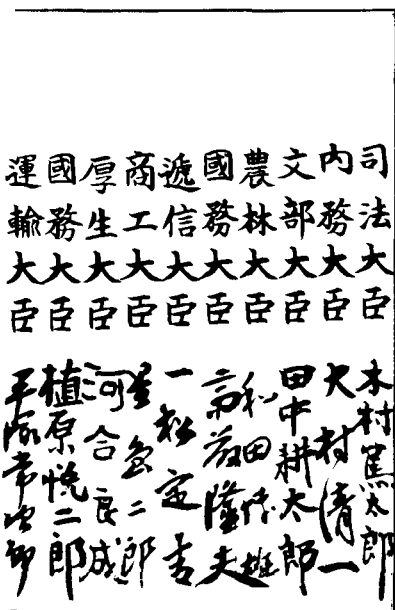 司法大臣 木村篤太郎
内務大臣 大村清一
文部大臣 田中耕太郎
農林大臣 和田博雄
國務大臣 斎藤隆夫
遞信大臣 一松定吉
商工大臣 星島二郎
厚生大臣 河合良成
國務大臣 植原悦二郎
運輸大臣 平塚常次郎